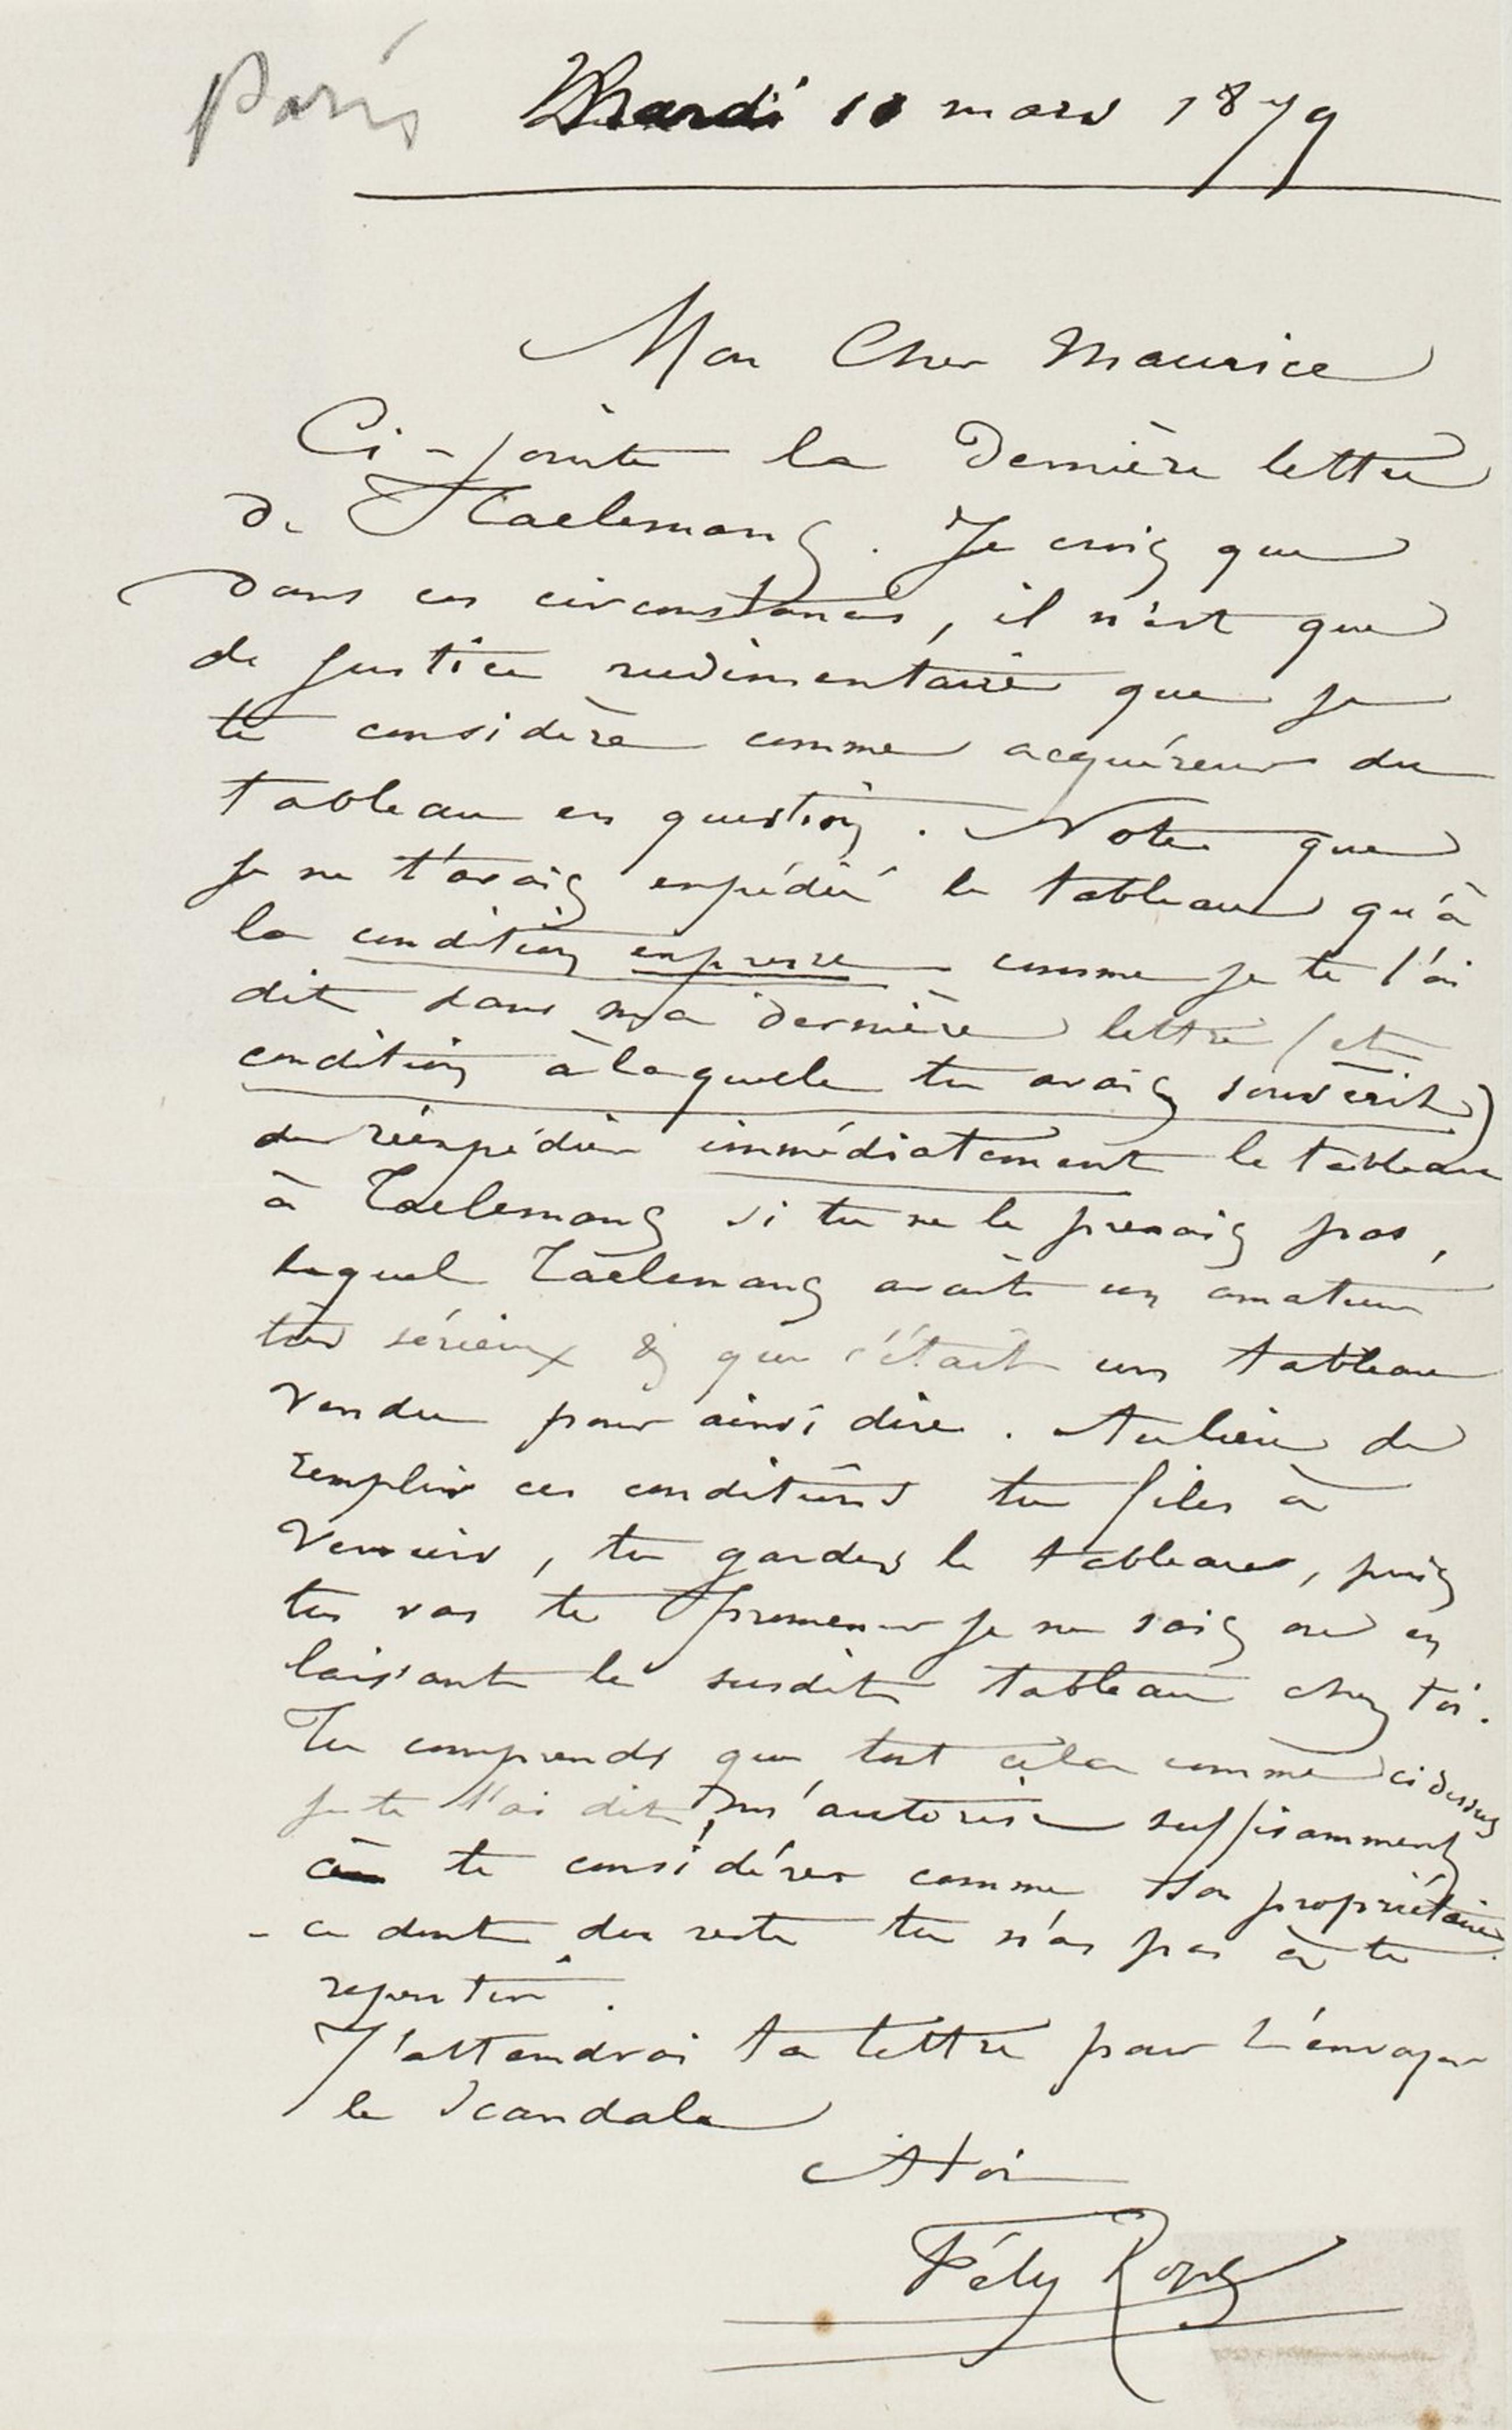 Paris Mardi 11 mars 1879
Mon Cher Maurice
Ci-jointe la dernière lettre
de Taelemans. Je crois que
dans ces circonstances, il n'est que
de justice rudimentaire que je
te considère comme acquéreur du
tableau en question. Note que
je ne t'avais expédié le tableau qu'à
la condition expresse comme je te l'ai
dit dans ma dernière lettre (et
condition à laquelle tu avais souscrit)
de réexpédier immédiatement le tableau
à Taelemans si tu ne le prenais pas,
lequel Taelemans avait un amateur
très sérieux & que c'était un tableau
vendu pour ainsi dire. Au lieu de
remplir ces conditions tu files à
, tu gardes le tableau, puis
tu vas te promener je ne sais où en
laissant le susdit tableau chez toi.
Tu comprends que tout cela comme ci dessus
je te l'ai dit, m'autorise suffisamment
à te considérer comme son propriétaire.
- ce dont du reste tu n'as pas à te
repentir.
J'attendrai ta lettre pour t'envoyer
le Scandale
A toi
Fély Rops